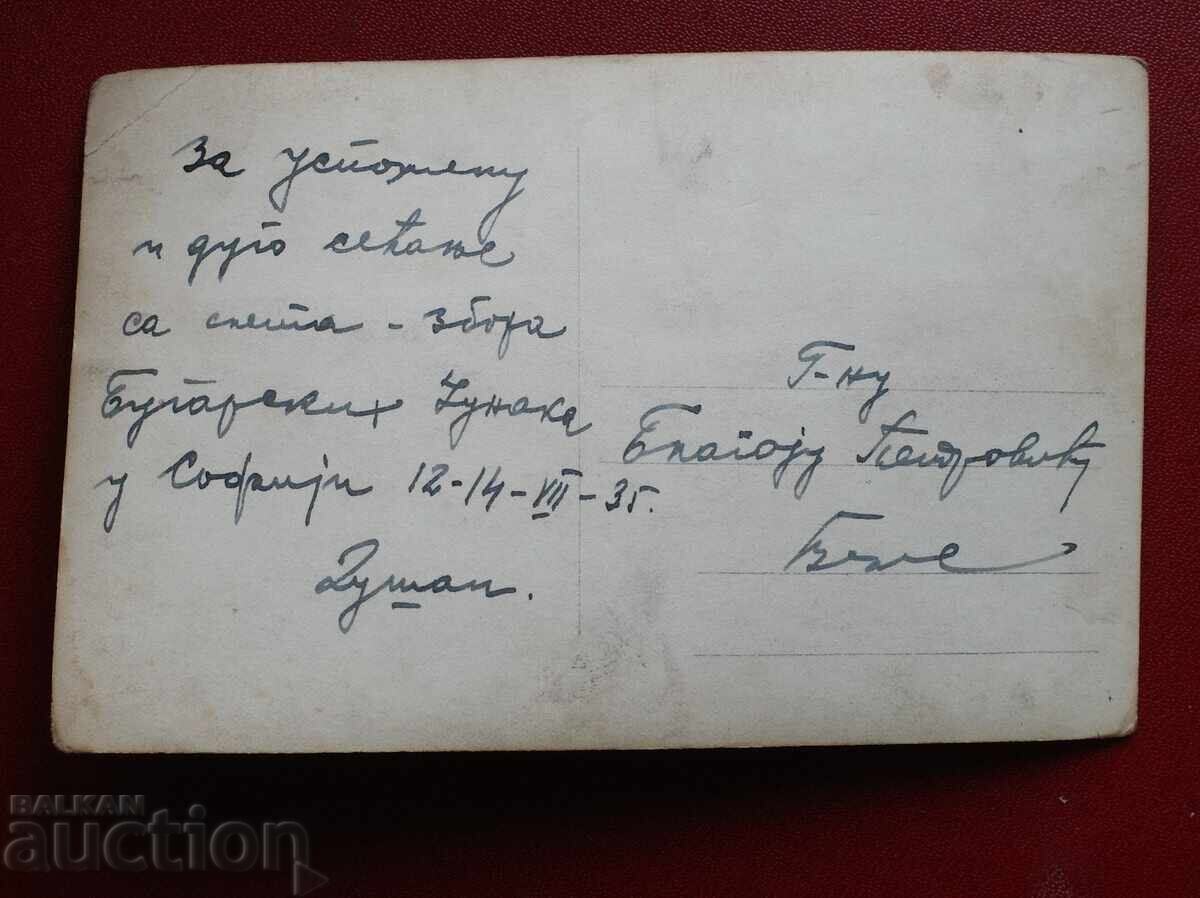 За успомену
и дуго сећање
са слета - збора
Бугарских Јунака
у Софији 12-14-VII-35.
Душан.
Г-ну
Благоју Петровићу
BALKAN
auction